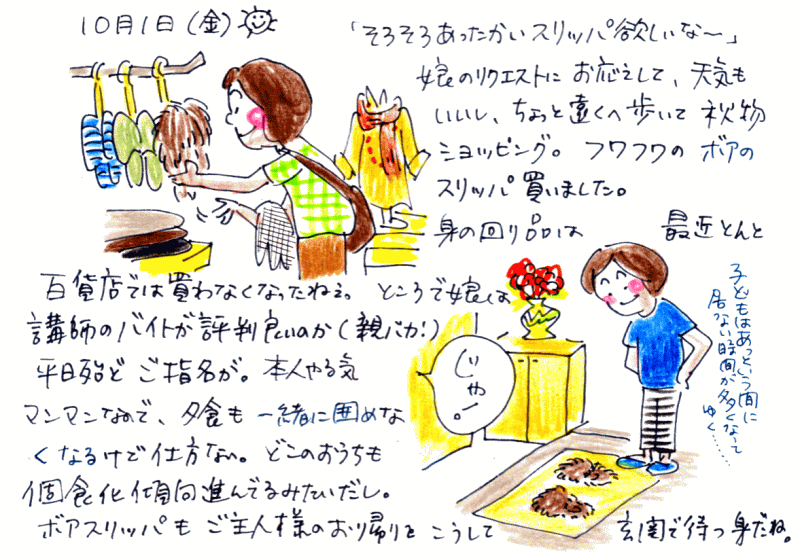 10月1日(金)
「そろそろあったかいスリッパ欲しいな〜」
娘のリクエストにお応えして、天気も
いいし、ちょっと遠くへ歩いて秋物
ショッピング。フワフワのボアの
スリッパ買いました。
身の回り品は 最近とんと
百貨店では買わなくなったねぇ。ところで娘は
講師のバイトが評判良いのか(親バカ!)
平日殆どご指名が。本人やる気
マンマンなので、夕食も一緒に囲めな
くなるけど仕方ない。どこのおうちも
個食化傾向進んでるみたいだし。
ボアスリッパもご主人様のお帰りをこうして 玄関で待つ身だね。
じゃー!
子どもはあっという間に
居ない時間が多くなって
ゆく……